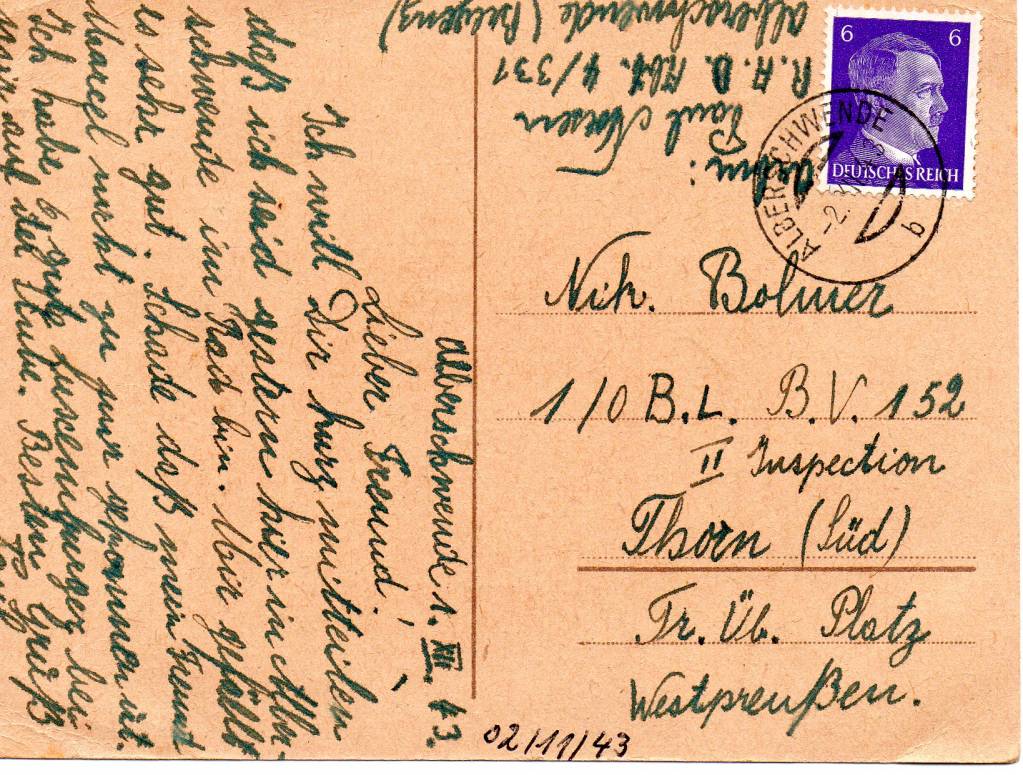 Alberschwende 1. XII. 43.
Lieber Freund,
Ich will Dir kurz mitteilen
daß ich seid gestern hier in Alber-
schwende im Rad bin. Mir gefällt
es sehr gut. Schade daß mein Freund
Marcel nicht zu mir gekommen ist.
Ich habe 6 gute Luxemburger bei
mir auf der Stube. Besten Gruß
Paul
Absn:
Paul
R.A.D. Abt. 4/331
Alberschwende (Bregenz)
6 6
DEUTSCHES REICH
ALBERSCHWENDE
b
Nik. Bolmer
1/O B.L. B.V. 152
II Inspection
Thorn (Süd)
Tr. Üb. Platz
Westpreußen.
02/11/43